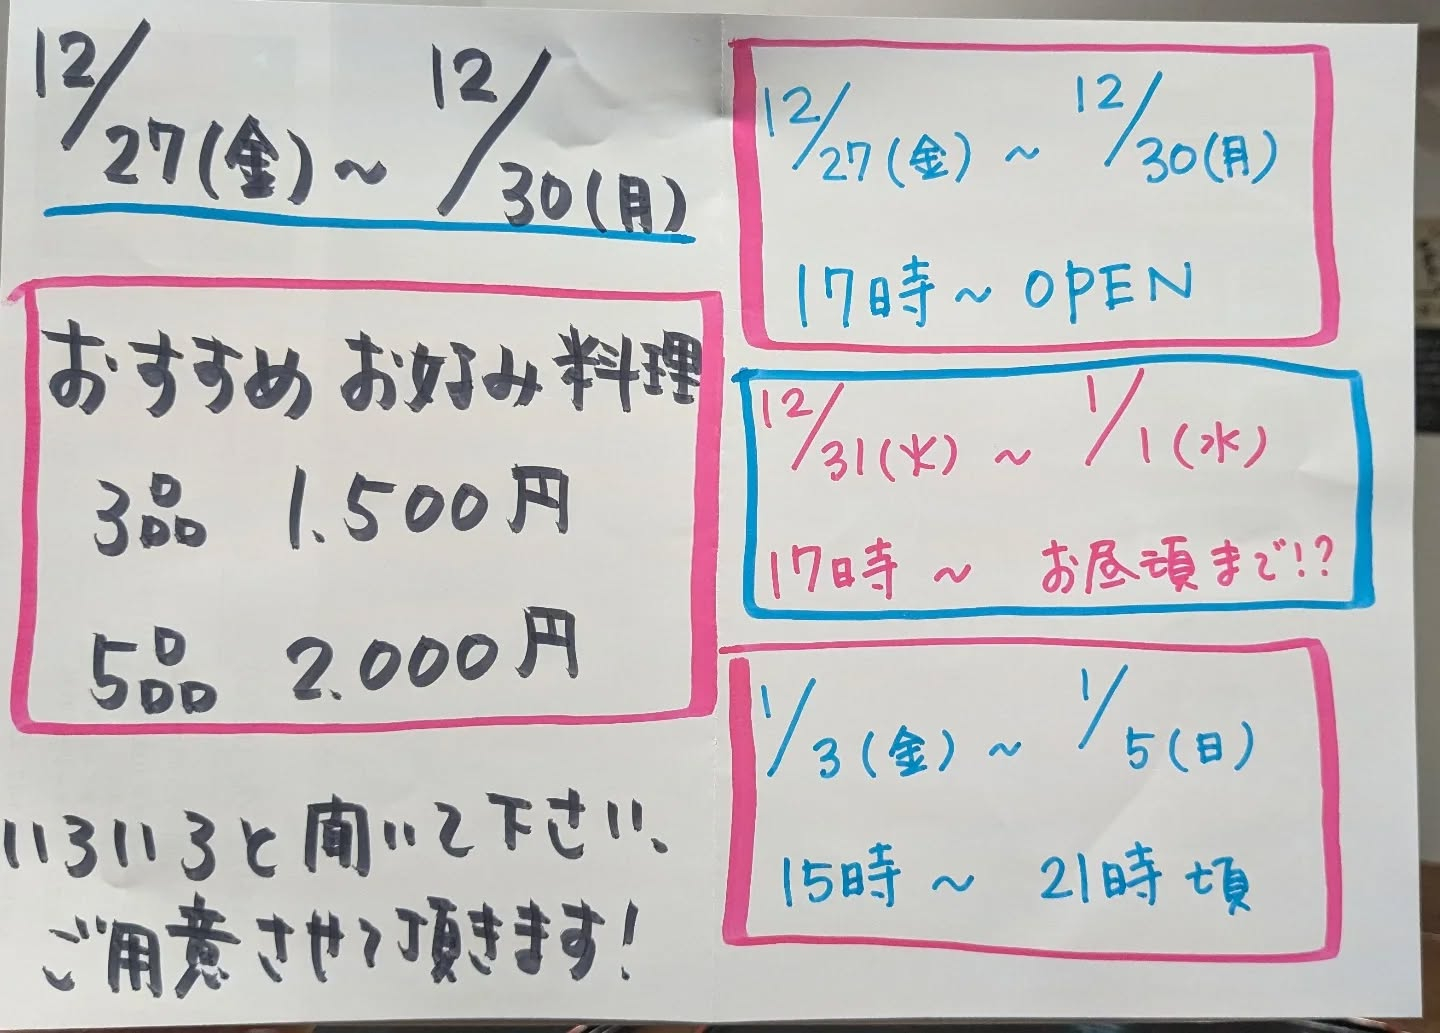 12/27(金)～12/30(月)
おすすめ お好み料理
3品 1.500円
5品 2.000円
いろいろと聞いて下さい、
ご用意させて頂きます！
12/27(金)～12/30(月)
17時～OPEN
12/31(火)～1/1(水)
17時～お昼頃まで!?
1/3(金)～1/5(日)
15時～21時頃